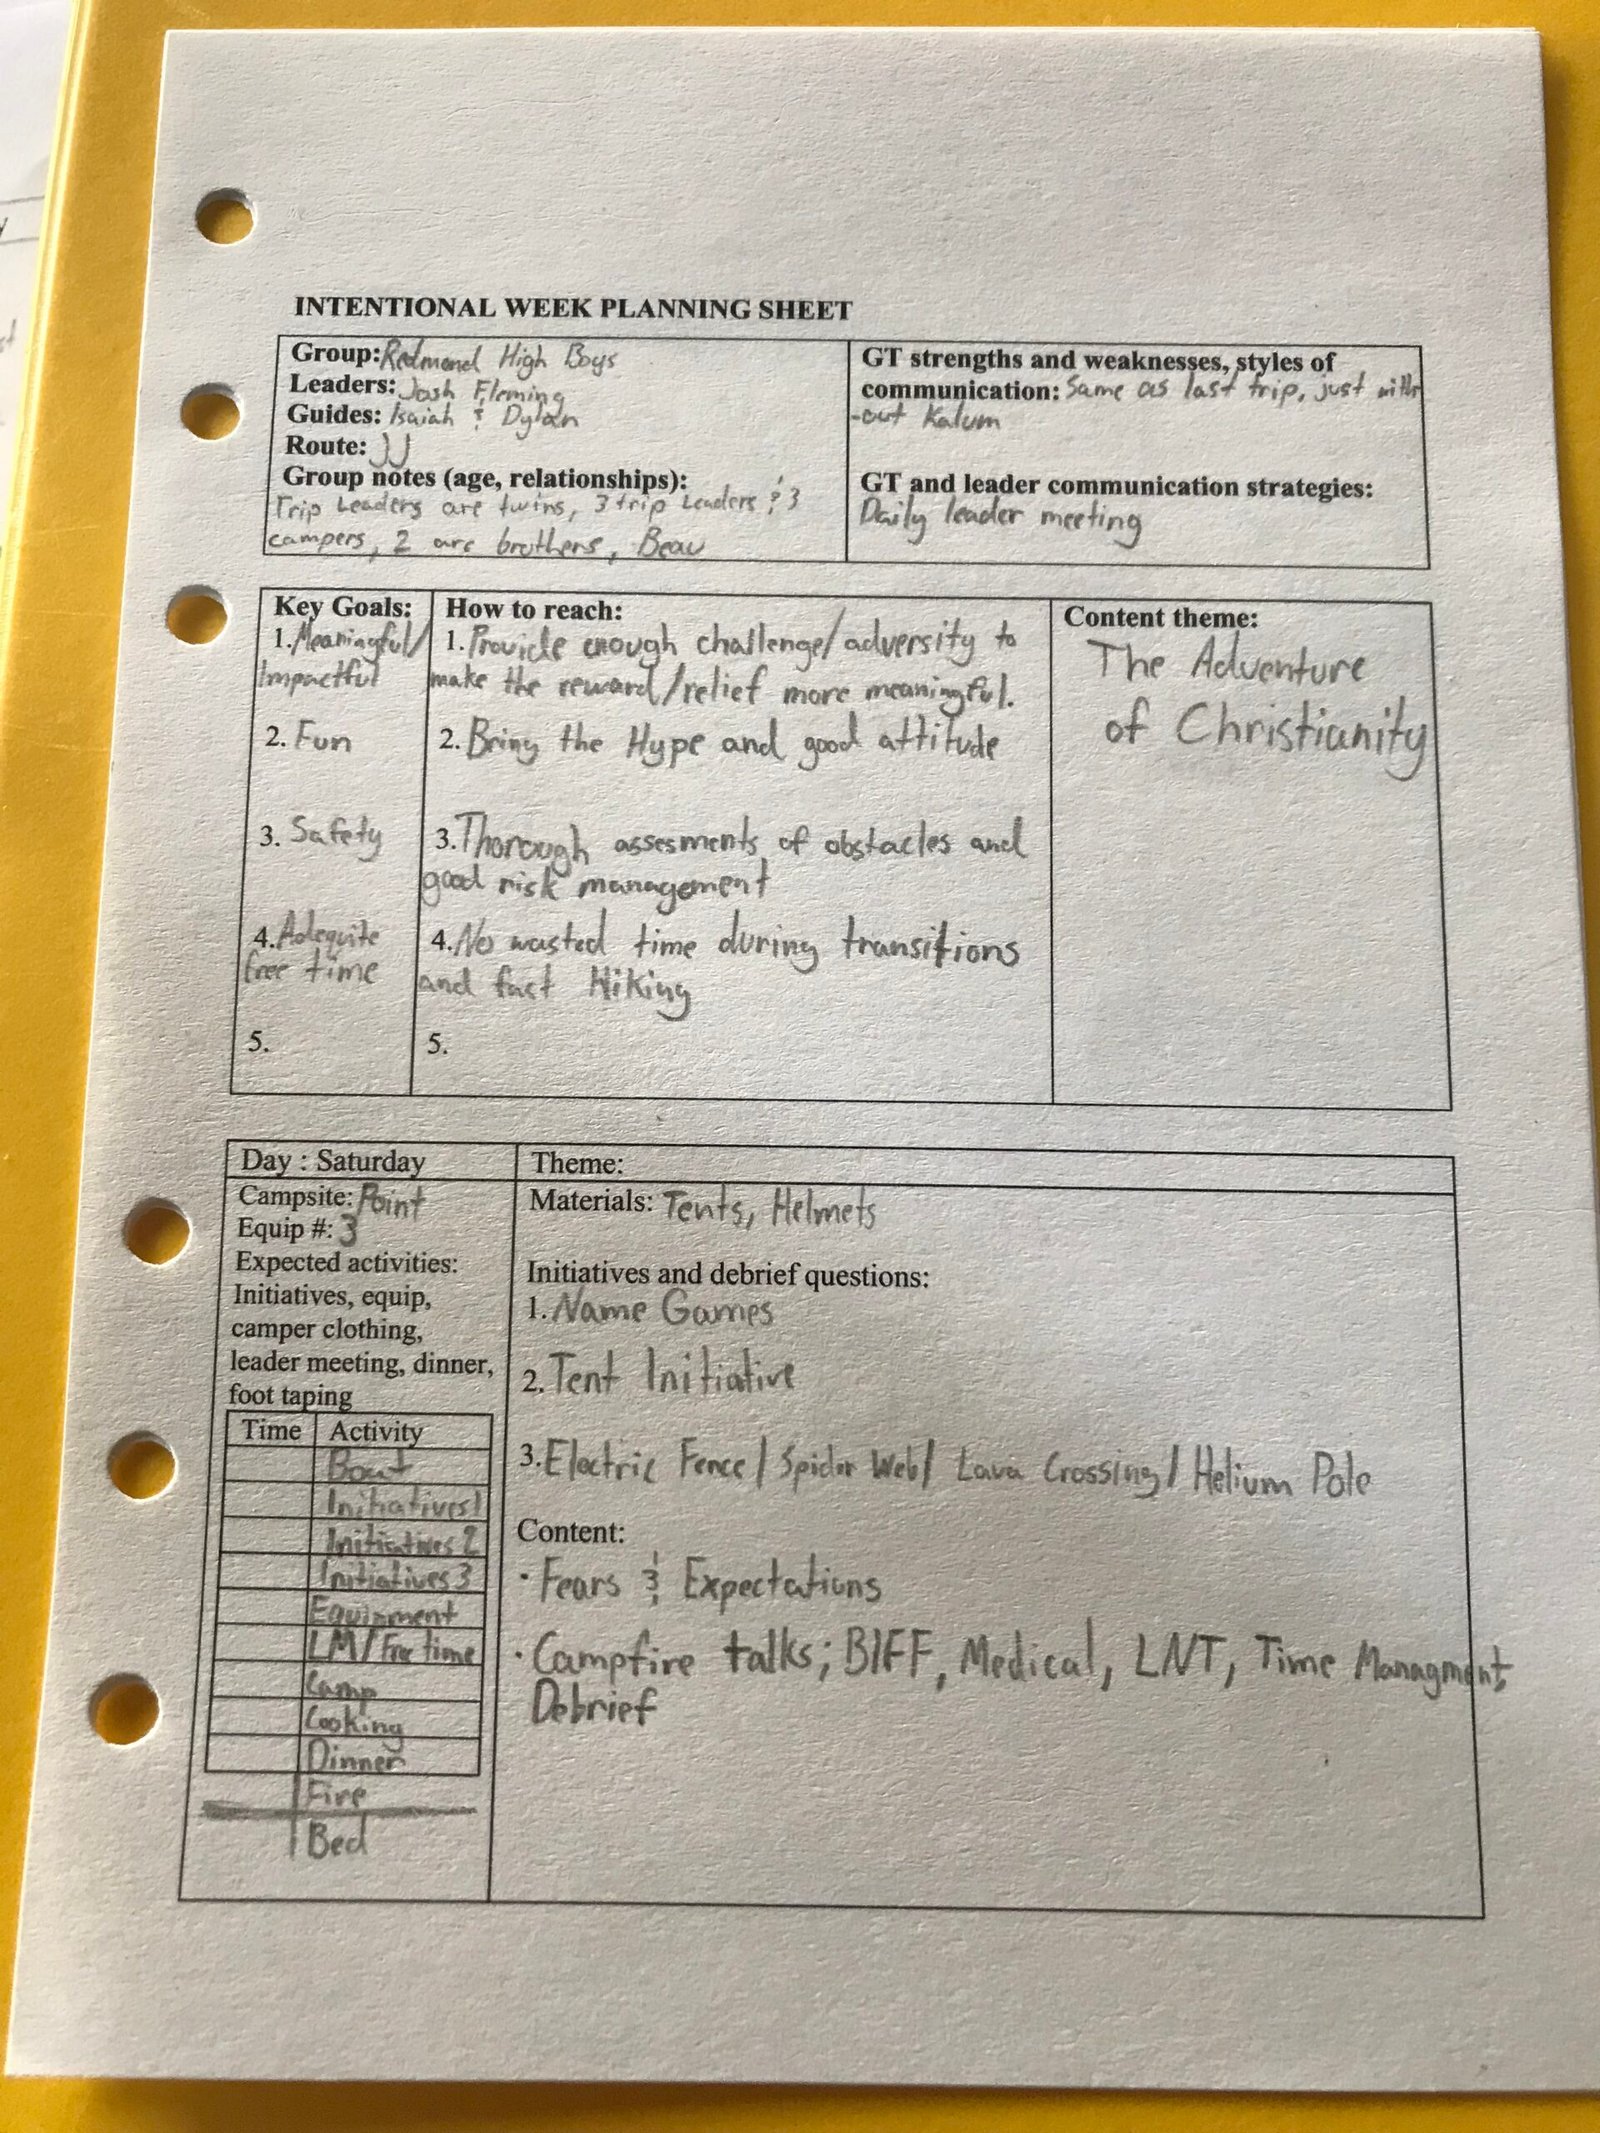 INTENTIONAL WEEK PLANNING SHEET
Group: Redmond High Boys
Leaders: Josh Fleming
Guides: Isaiah & Dylan
Route: JJ
Group notes (age, relationships):
Trip Leaders are twins, 3 trip Leaders & 3
campers, 2 are brothers, Beau
GT strengths and weaknesses, styles of
communication: Same as last trip, just with
-out Kalum
GT and leader communication strategies:
Daily leader meeting
Key Goals:
1. Meaningful/
Impactful
2. Fun
3. Safety
4. Adequite
free time
5.
How to reach:
1. Provide enough challenge/adversity to
make the reward/relief more meaningful.
2. Bring the Hype and good attitude
3. Thorough assesments of obstacles and
good risk management
4. No wasted time during transitions
and fast Hiking
5.
Content theme:
The Adventure
of Christianity
Day : Saturday
Campsite: Point
Equip #: 3
Expected activities:
Initiatives, equip,
camper clothing,
leader meeting, dinner,
foot taping
Time Activity
Boat
Initiatives 1
Initiatives 2
Initiatives 3
Equipment
LM/Free time
Camp
Cooking
Dinner
Fire
Bed
Theme:
Materials: Tents, Helmets
Initiatives and debrief questions:
1. Name Games
2. Tent Initiative
3. Electric Fence/Spider Web/ Lava Crossing/Helium Pole
Content:
· Fears & Expectations
· Campfire talks; BIFF, Medical, LNT, Time Managment
Debrief